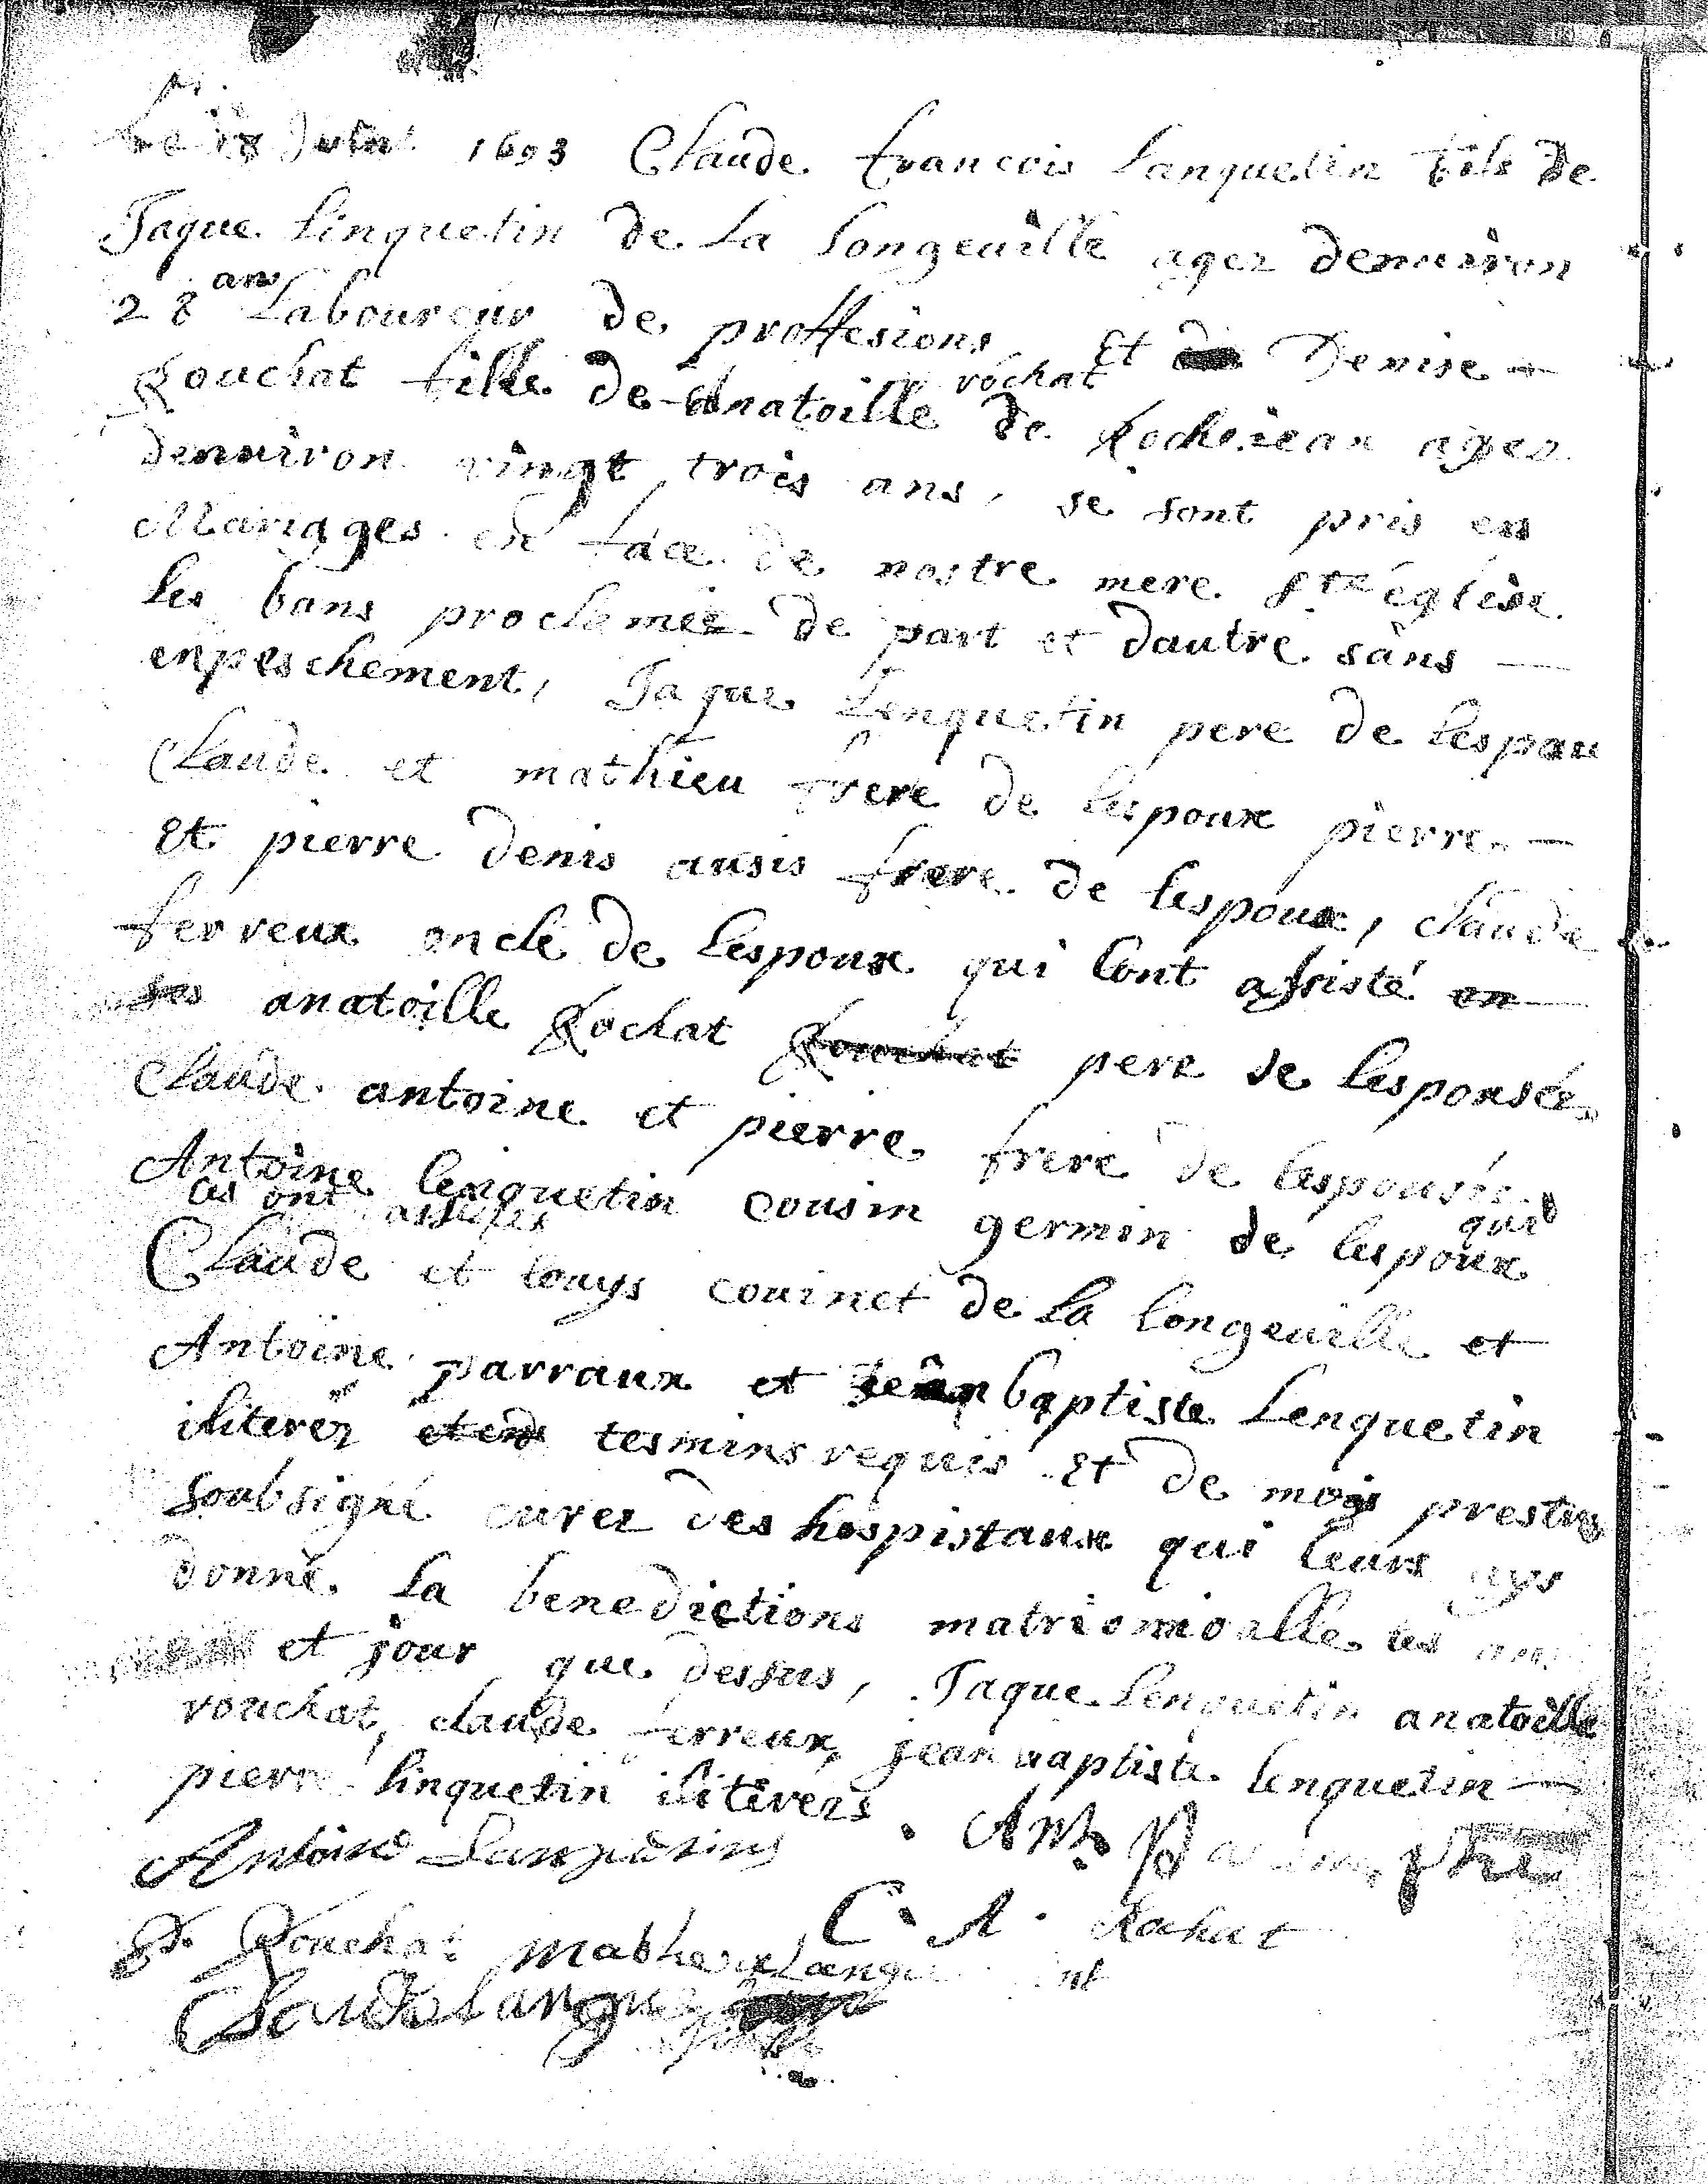 Le 18 Juin 1693 Claude francois Lanquetin fils de
Jaque Linquetin de La Longeuille agez denuiron
28 ans Laboureur de proffesions Et Denise
Rouchat fille de Anatoille rochat de Rocheiean agez
denuiron vingt trois ans, se sont pris en
Mariages en face de nostre mere Ste églisse
les bans proclaméz de part et dautre sans
enpeschement, Jaque Lenquetin pere de Lespou
Claude et mathieu frere de lespoux pierre
Et pierre denis ausis frere de lespoux, claude
ferreux oncle de Lespoux qui lont assisté
anatoille Rochat Rouchat pere de lesponsée
Claude antoine et pierre frere de lespousée
Antoine lenquetin cousin germin de lespoux qui
les ont assistés
Claude et louys couinet de la longeuille et
Antoine parraux et jean baptiste Lenquetin
iliteréz tesmins requis Et de mois prestre
soubsigné curez des hospistaux qui leurs ays
donné la benedictions matriomioalle les an
et jour que dessus, Jaque Lenquetin anatoille
rouchat, claude ferreux, jean baptiste lenquetin
pierre linquetin iliterérs. Ant.
Antoine Lanquetin
C. A. Rochat
P. Rouchat matheux
Claude